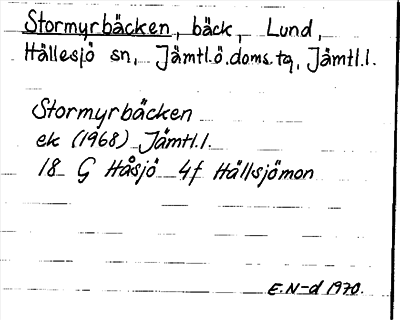 Stormyrbäcken, bäck, Lund,
Hällesjö sn, Jämtl.ö.doms.tg, Jämtl.l.
Stormyrbäcken
ek (1968) Jämtl.l.
18 G Håsjö 4f Hällsjömon
E.N-d 1970.